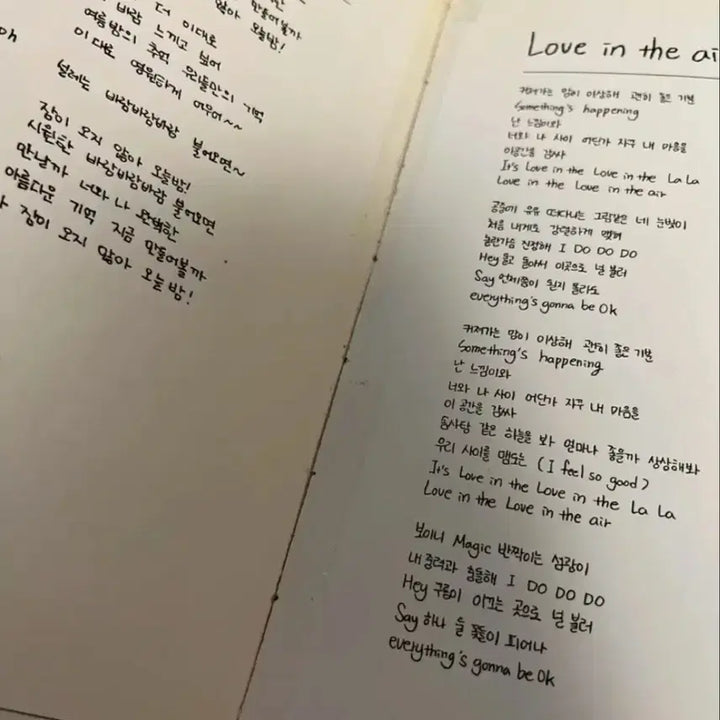 만들어볼까
않아 오늘밤!
더 이대로
바람 느끼고 싶어
여름밤의 추억 우리들만의 기억
이대로 영원하게 여우어~~
설레는 바람바람바람 불어오면~
잠이 오지 않아 오늘밤!
시원한 바람바람바람 불어오면
만날까 너와 나 완벽한
아름다운 기억 지금 만들어볼까
잠이 오지 않아 오늘밤!
Love in the ai
커져가는 맘이 이상해 괜히 좋은 기분
Something's happening
난 느낌이와
너와 나 사이 어딘가 자꾸 내 마음을
이 공간을 감싸
It's Love in the Love in the La La
Love in the Love in the air
공중에 유유 떠다니는 그림같은 네 눈빛이
처음 내게도 강렬하게 맺혀
놀란가슴 진정해 I DO DO DO
Hey 돌고 돌아서 이곳으로 널 불러
Say 언제쯤이 될지 몰라도
everything's gonna be Ok
커져가는 맘이 이상해 괜히 좋은 기분
Something's happening
난 느낌이와
너와 나 사이 어딘가 자꾸 내 마음을
이 공간을 감싸
솜사탕 같은 하늘을 봐 얼마나 좋을까 상상해봐
우리 사이를 맴도는 (I feel so good)
It's Love in the Love in the La La
Love in the Love in the air
보이니 Magic 반짝이는 섬광이
내 중력과 충돌해 I DO DO DO
Hey 구름이 이끄는 곳으로 널 불러
Say 하나 둘 꽃들이 피어나
everything's gonna be Ok